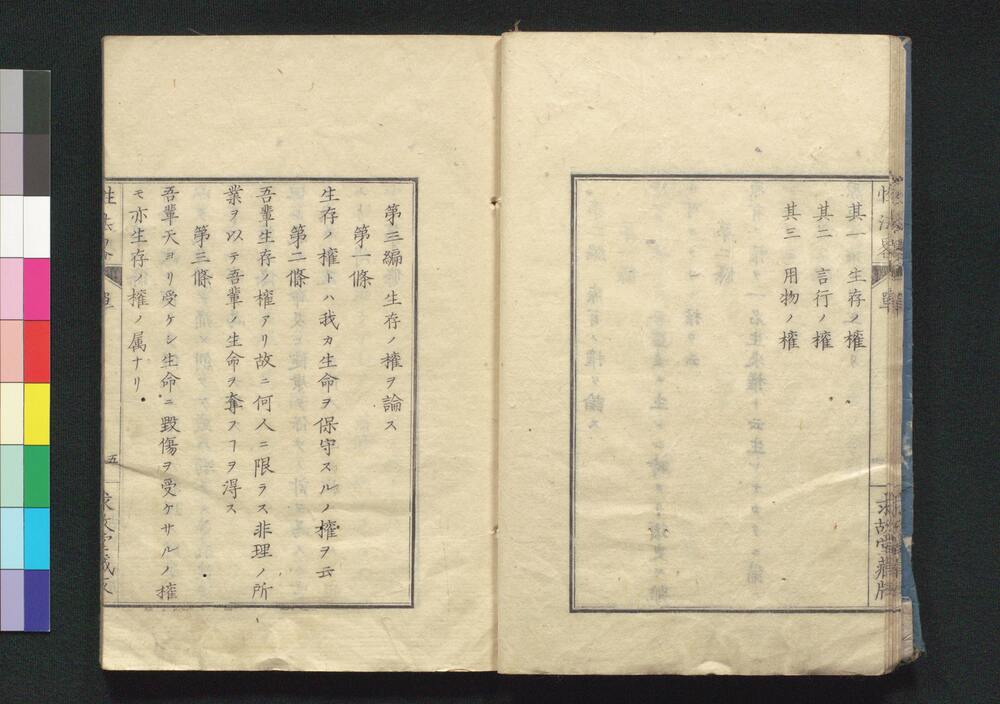 其一 生存ノ權
其二 言行ノ權
其三 用物ノ權
第三編 生存ノ權ヲ論ス
第一條
生存ノ權トハ我カ生命ヲ保守スルノ權ヲ云
第二條
吾輩生存ノ權アリ故ニ何人ニ限ラス非理ノ所
業ヲ以テ吾輩ノ生命ヲ奪フヿヲ得ス
第三條
吾輩天ヨリ受ケシ生命ニ毀傷ヲ受ケサルノ權
モ亦生存ノ權ノ属ナリ
五